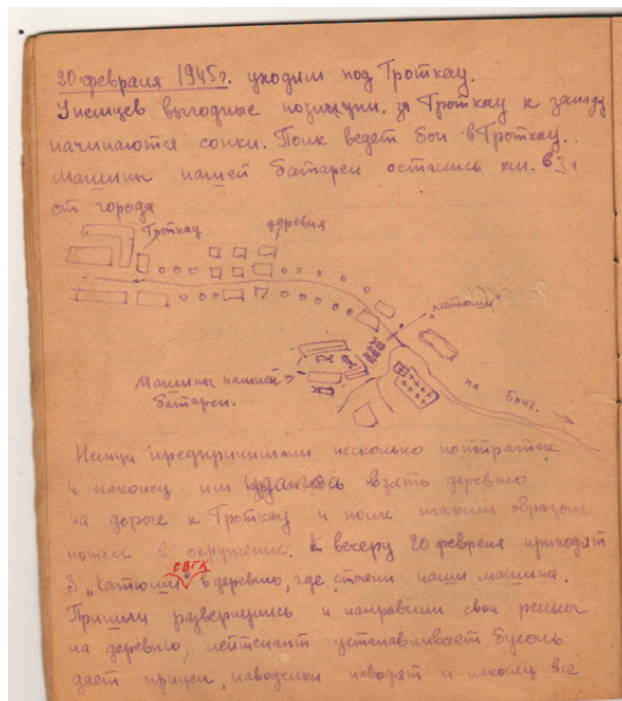 20 февраля 1945г. уходим под Гроткау.
У немцев выгодные позиции. за Гроткау к западу
начинаются сопки. Полк ведет бои в Гроткау..
Машины нашей батареи остались км. в 3х
от города
Гроткау
деревня
"катюши"
Машины нашей
батареи.
на Бриг.
Немцы предпринимали несколько контратак
и наконец им удалось взять деревню
на дороге к Гроткау и полк таким образом
попал в окружение. К вечеру 20 февраля приходят
СВГК
3 „Катюши" в деревню, где стояли наши машины.
Пришли развернулись и направили свои рельсы
на деревню, лейтенант устанавливает бусоль
дает прицел, наводчики наводят и наконец всё